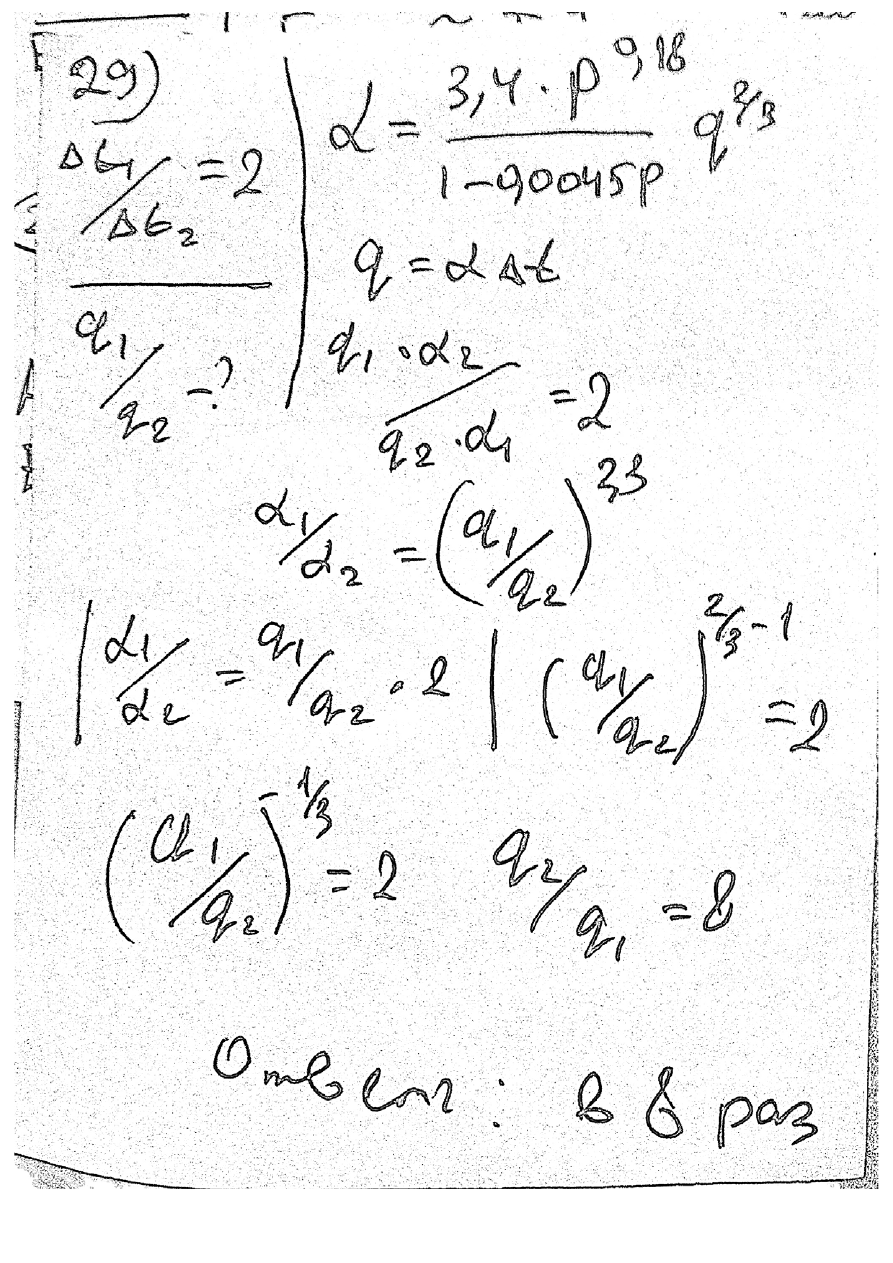 29)
Δt₁/Δt₂ = 2
q₁/q₂ - ?
α = 3,4 · p^0,18 / 1-0,0045p q^2/3
q = α Δt
q₁ · α₂ / q₂ · α₁ = 2
α₁/α₂ = (q₁/q₂)^2/3
| α₁/α₂ = q₁/q₂ · 2 | (q₁/q₂)^2/3-1 = 2
(q₁/q₂)^-1/3 = 2 q₂/q₁ = 8
Ответ: в 8 раз